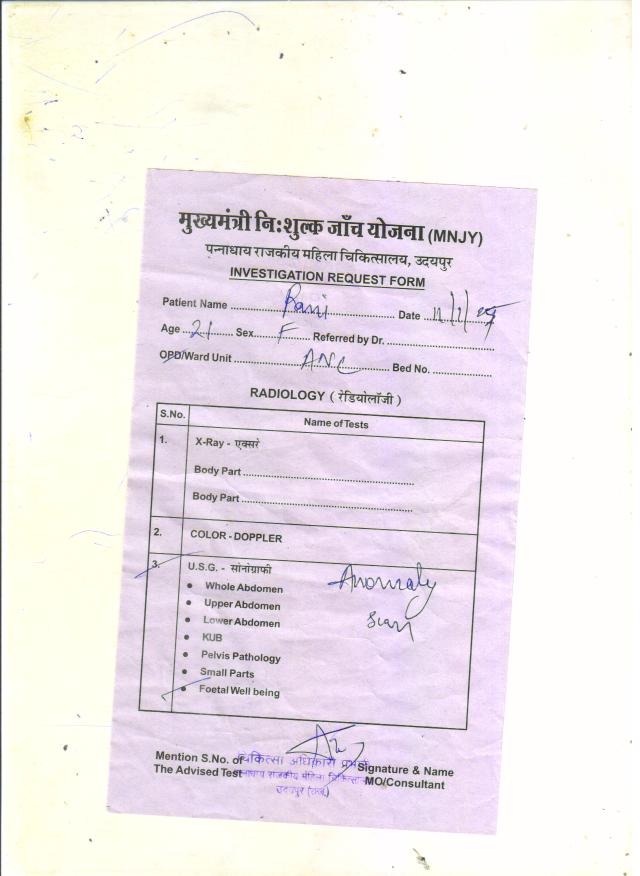 मुख्यमंत्री निःशुल्क जाँच योजना (MNJY)
पन्नाधाय राजकीय महिला चिकित्सालय, उदयपुर
INVESTIGATION REQUEST FORM
Patient Name Rani Date
Age 21 Sex F Referred by Dr.
OPD/Ward Unit ANC Bed No.
RADIOLOGY ( रेडियोलॉजी )
S.No. Name of Tests
1. X-Ray - एक्सरे
Body Part
Body Part
2. COLOR - DOPPLER
3. U.S.G. - सोनोग्राफी Anomaly
• Whole Abdomen
• Upper Abdomen scan
• Lower Abdomen
• KUB
• Pelvis Pathology
• Small Parts
• Foetal Well being
चिकित्सा अधिकारी प्रभारी
Mention S.No. of Signature & Name
The Advised Test राजकीय महिला MO/Consultant
उदयपुर (राज.)